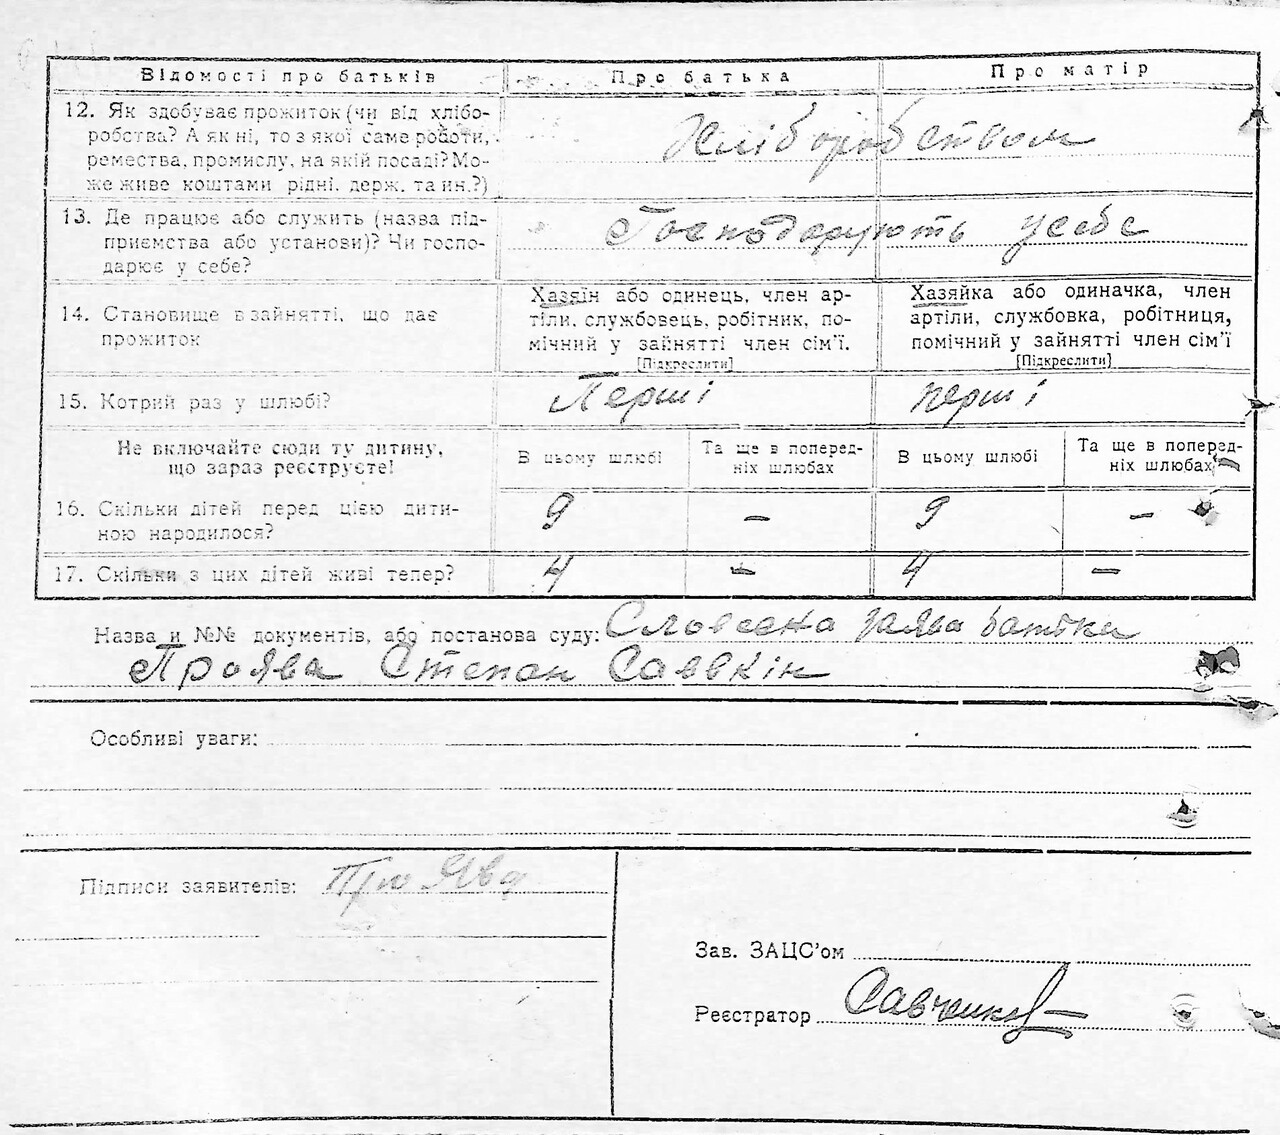 Відомості про батьків
Про батька
Про матір
12. Як здобуває прожиток (чи від хлібо-
робства? А як ні, то з якої саме роботи,
ремества, промислу, на якій посаді? Мо-
же живе коштами рідні, держ. та ин.?)
Хліборобством
13. Де працює або служить (назва під-
приємства або установи)? Чи госпо-
дарює у себе?
Господарують у себе
14. Становище в зайнятті, що дає
прожиток
Хазяїн або одинець, член ар-
тіли, службовець, робітник, по-
мічний у зайнятті член сім'ї.
[Підкреслити]
Хазяйка або одиначка, член
артіли, службовка, робітниця,
помічний у зайнятті член сім'ї
[Підкреслити]
15. Котрий раз у шлюбі?
Перші
перші
Не включайте сюди ту дитину,
що зараз реєструєте!
В цьому шлюбі
Та ще в поперед-
ніх шлюбах
В цьому шлюбі
Та ще в поперед-
ніх шлюбах
16. Скільки дітей перед цією дити-
ною народилося?
9 — 9 —
17. Скільки з цих дітей живі тепер?
4 — 4 —
Назва и №№ документів, або постанова суду: Словесна заява батька
Проява Степан Саввкін
Особливі уваги:
Підписи заявителів: Проява
Зав. ЗАЦС'ом
Реєстратор Савченко